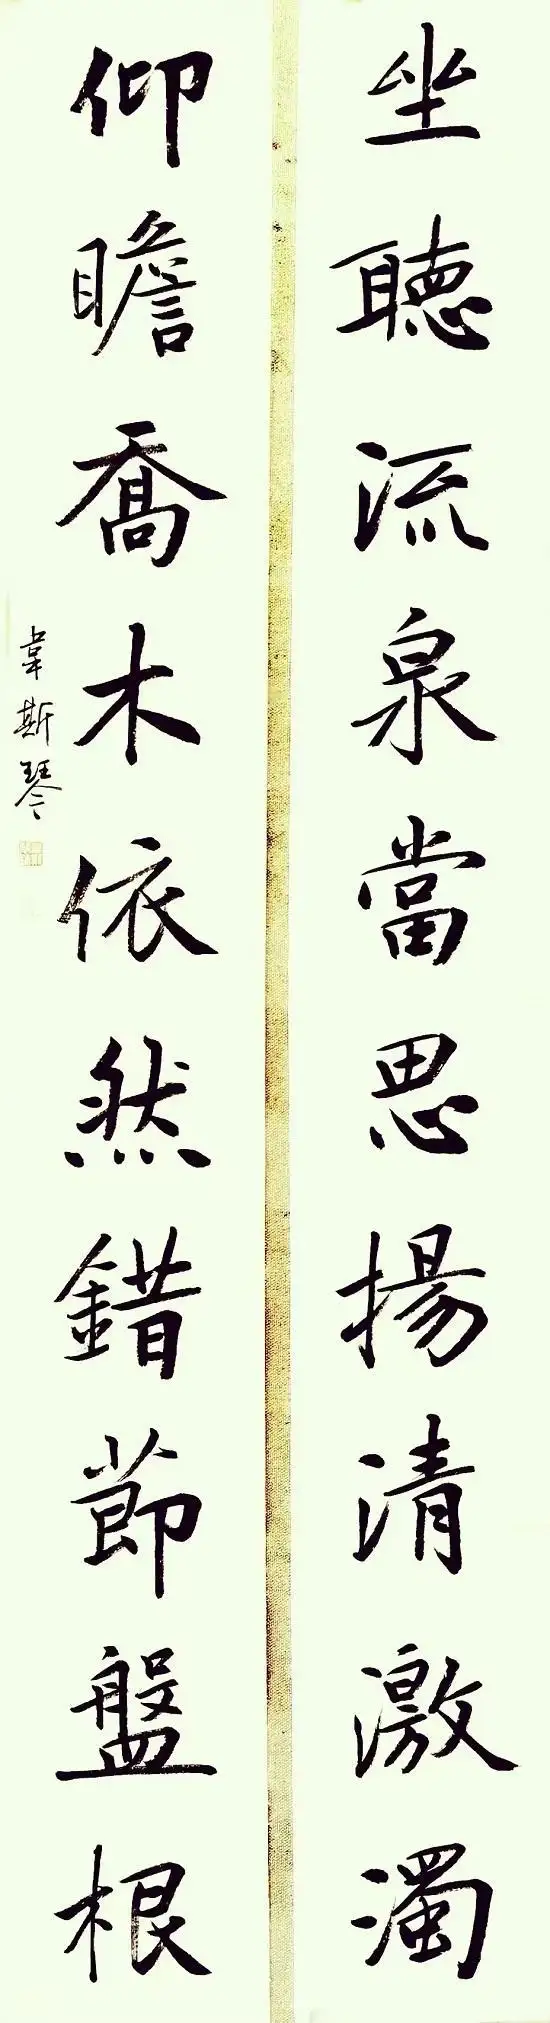 坐聽流泉當思揚清激濁
仰瞻喬木依然錯節盤根
韋斯琴